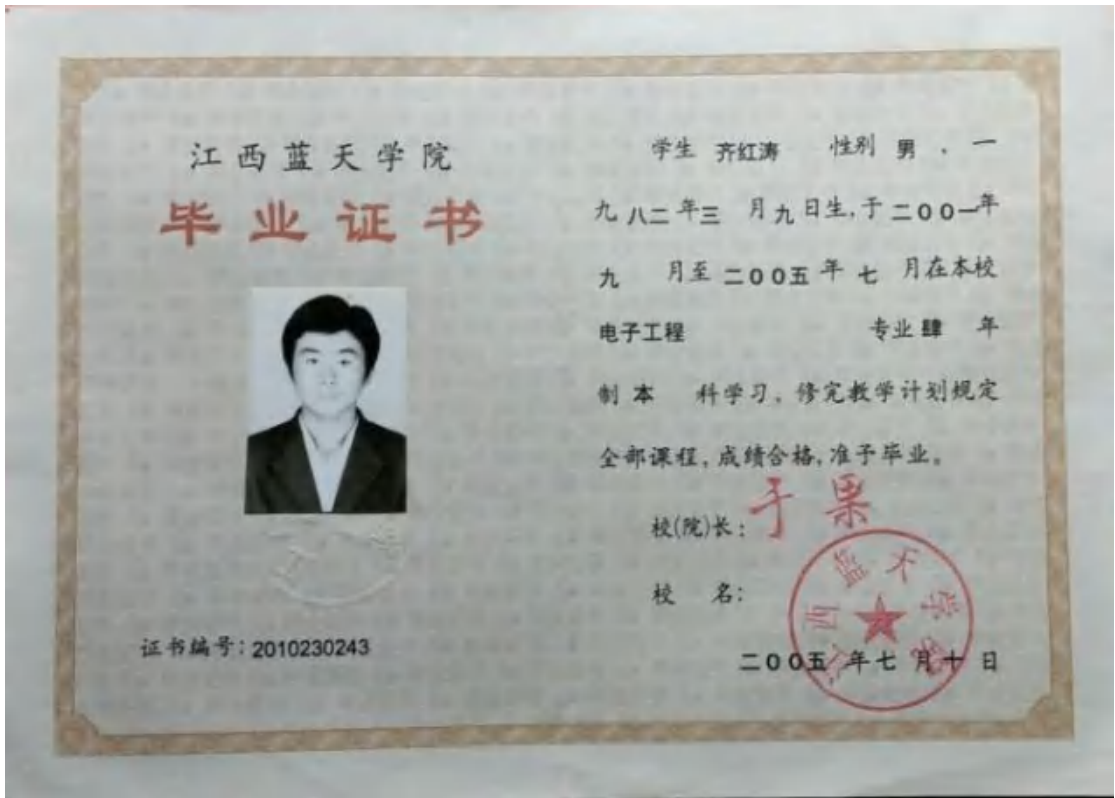 江西蓝天学院
毕业证书
证书编号：2010230243
学生 齐红涛 性别 男 ，一
九八二年三 月九日生，于二００一年
九 月至二００五年 七 月在本校
电子工程 专业肆 年
制 本 科学习，修完教学计划规定
全部课程，成绩合格，准予毕业。
校(院)长：于果
校 名：
江西蓝天学院
二００五 年七 月十 日